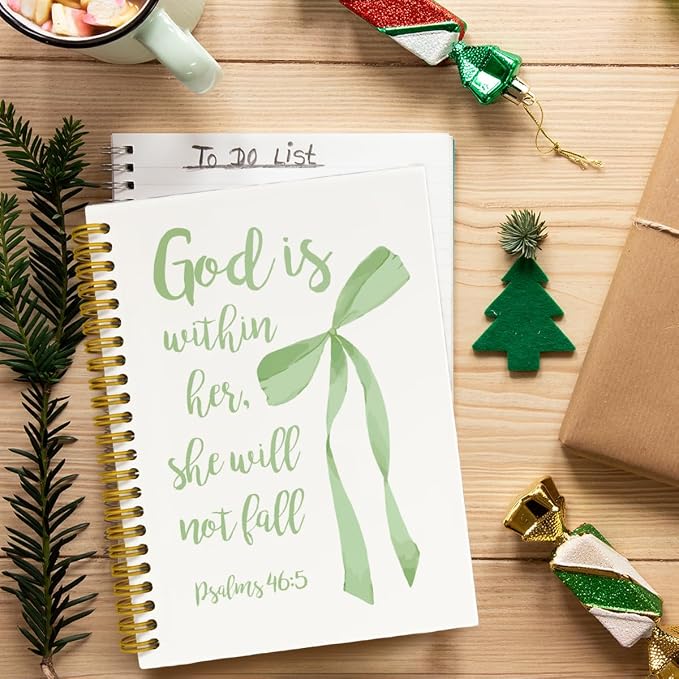 To Do List
God is
within
her,
she will
not fall
Psalms 46:5